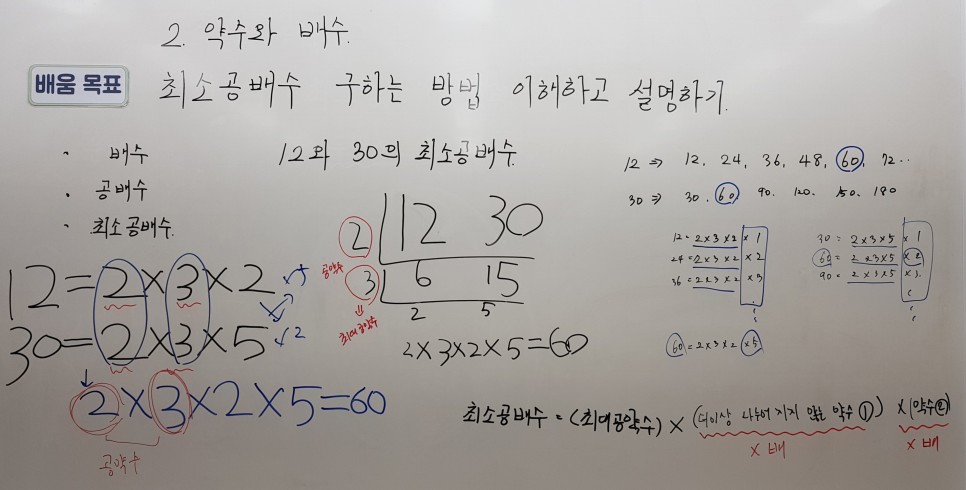 2. 약수와 배수.
배움 목표
최소공배수 구하는 방법 이해하고 설명하기.
· 배수
· 공배수
· 최소공배수.
12와 30의 최소공배수.
12 = 2×3×2
30 = 2×3×5
2×3×2×5=60
공약수
2 12 30
공약수
3 6 15
2 5
최대공약수
2×3×2×5=60
12 ⇒ 12, 24, 36, 48, 60, 72..
30 ⇒ 30. 60. 90. 120. 150. 180
12 = 2×3×2 × 1
24 = 2×3×2 × 2
36 = 2×3×2 ×3
60 = 2×3×2 ×5
30 = 2×3×5 × 1
60 = 2×3×5 ×2
90 = 2×3×5 ×3.
최소공배수 = (최대공약수) × (더이상 나누어 지지 않는 약수 ①) × (약수②)
× 배
× 배